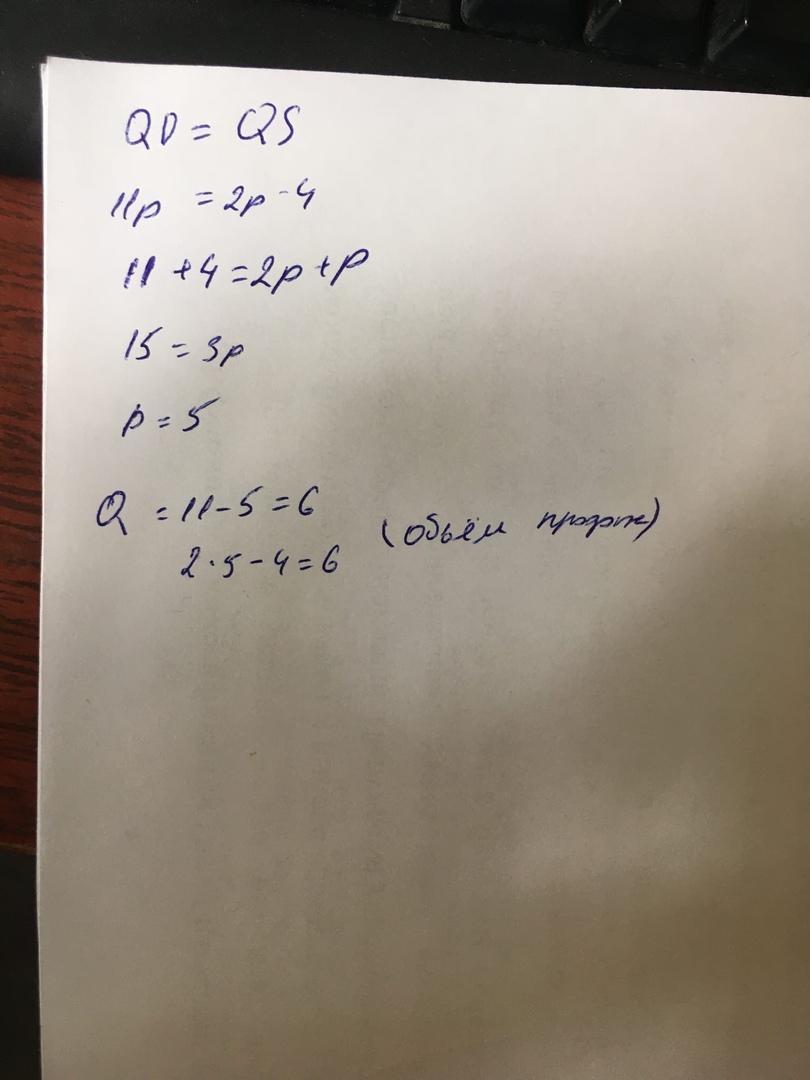 QD = QS
11p = 2p - 4
11 + 4 = 2p + p
15 = 3p
p = 5
Q = 11 - 5 = 6
2 · 5 - 4 = 6 (объём продаж)